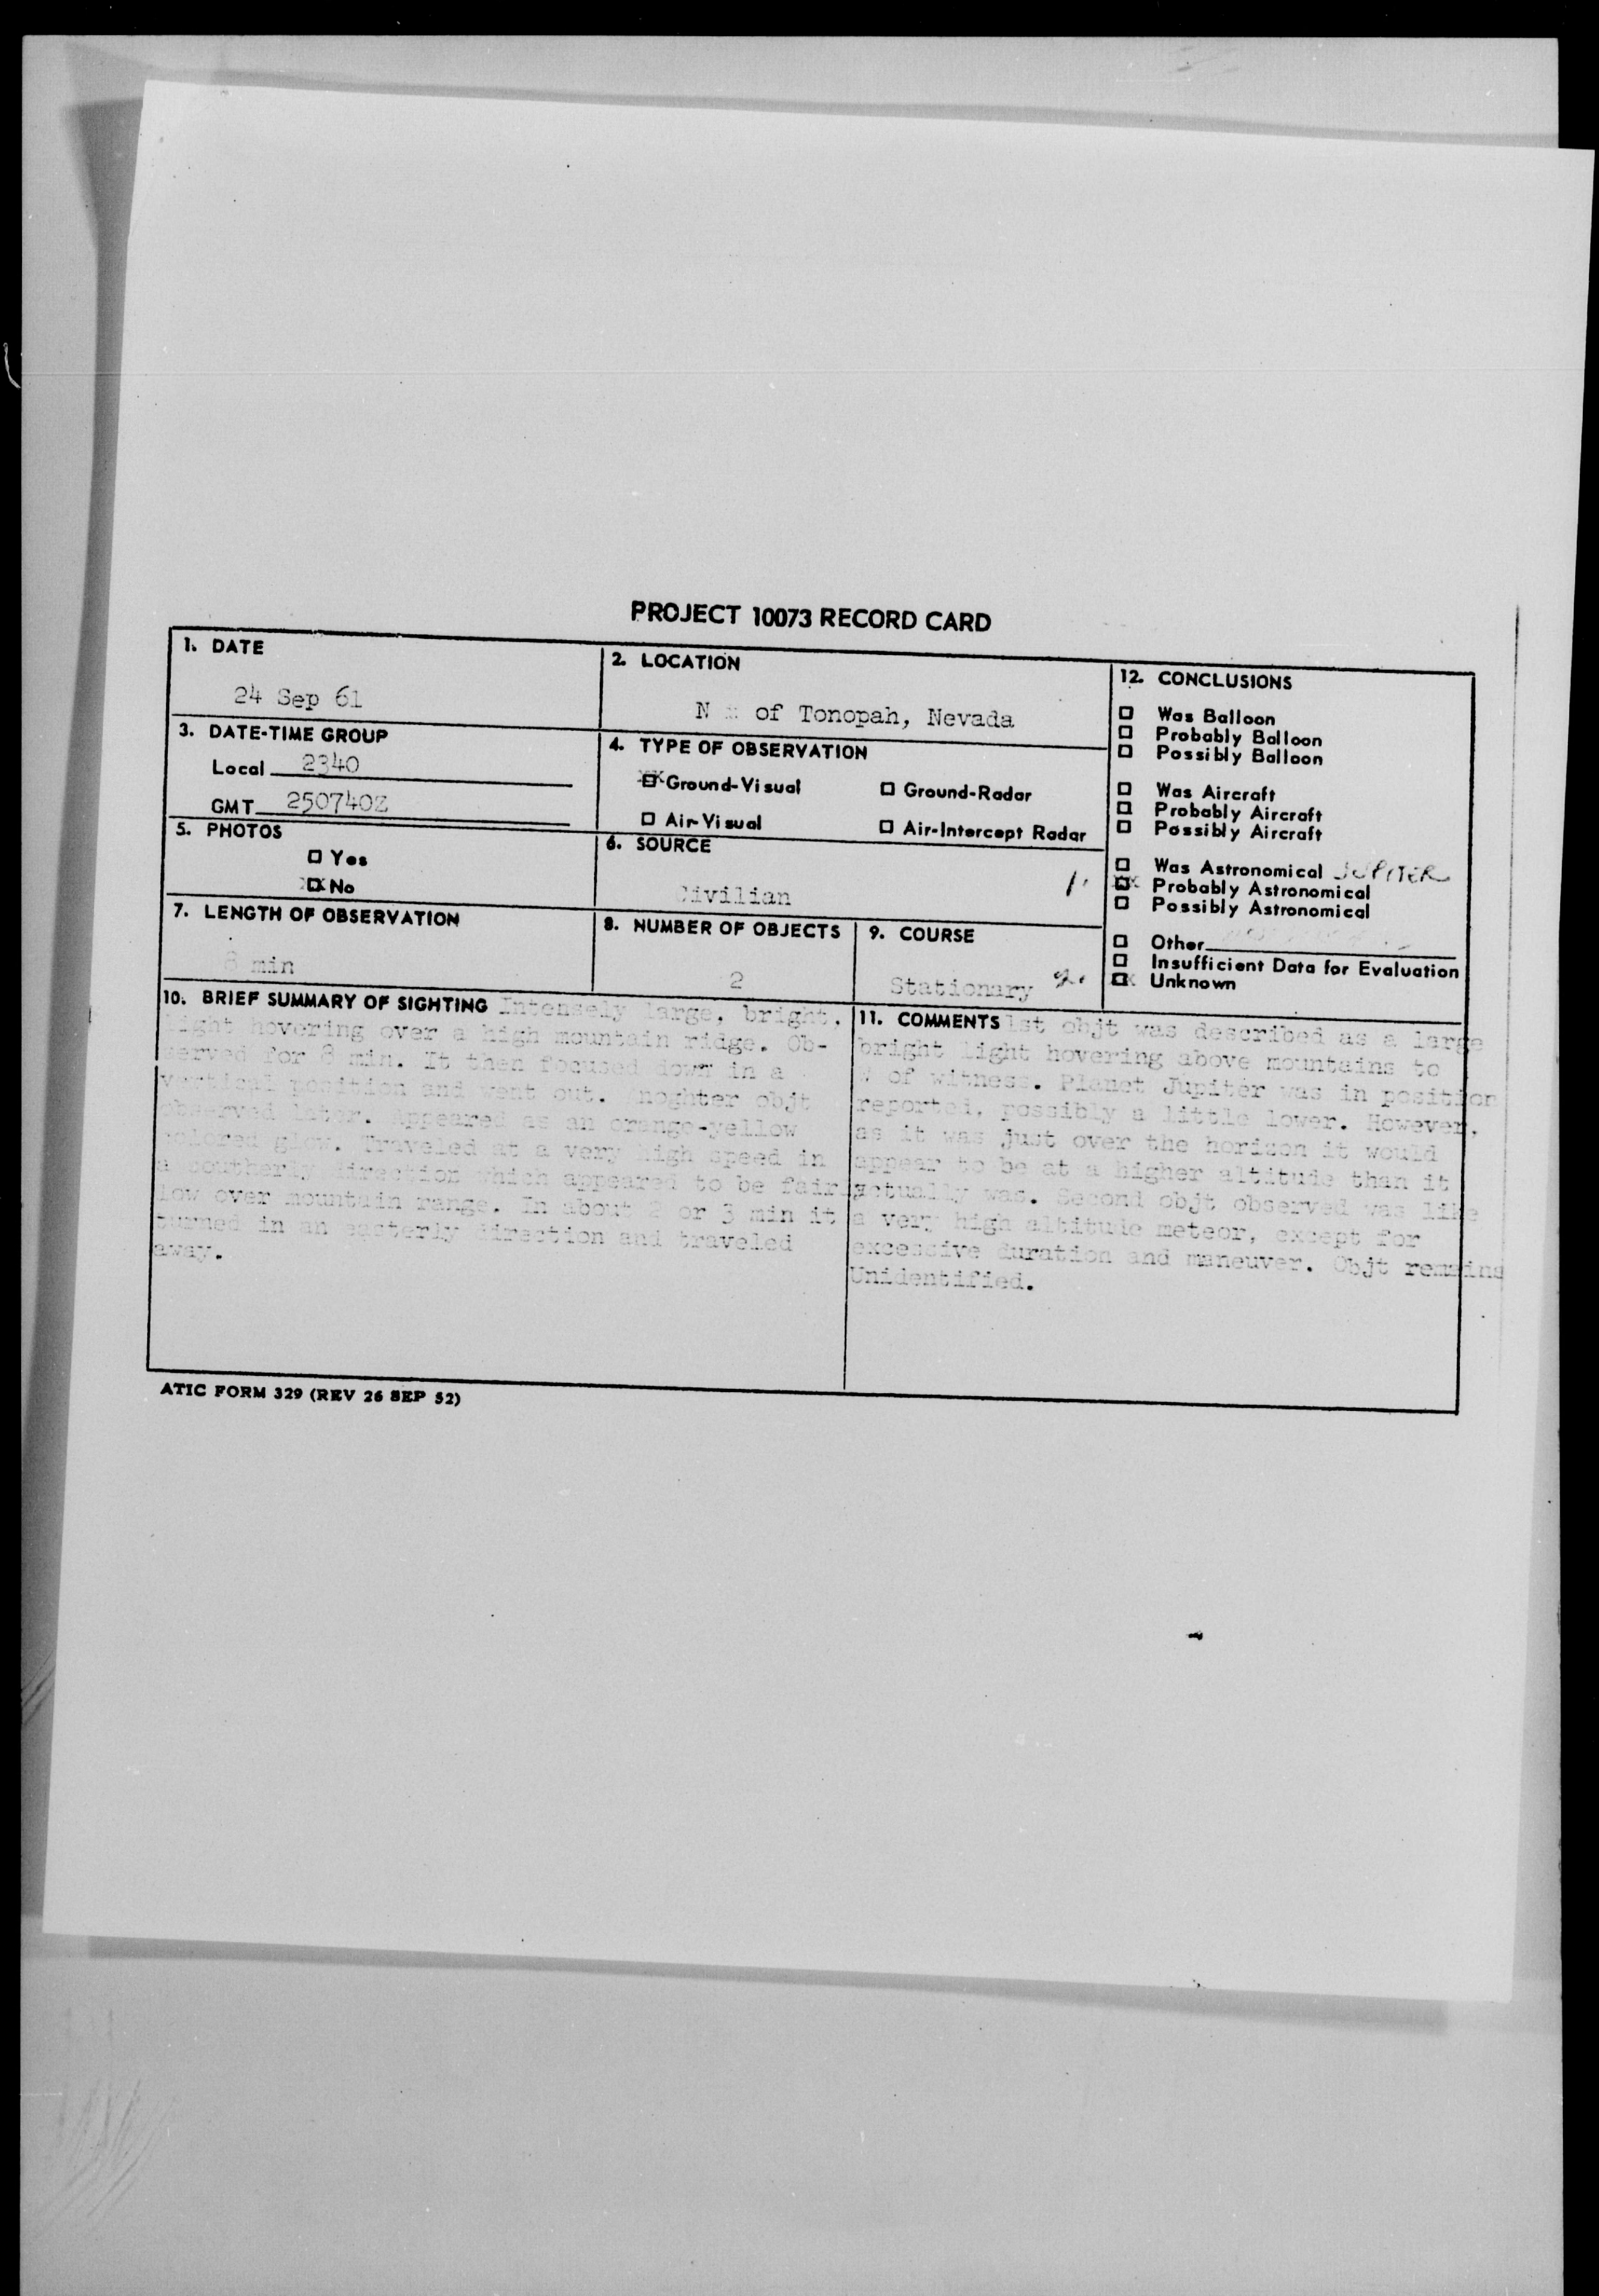 PROJECT 10073 RECORD CARD
1. DATE
24 Sep 61
2. LOCATION
N of Tonopah, Nevada
3. DATE-TIME GROUP
Local 2340
GMT 250740Z
4. TYPE OF OBSERVATION
XX Ground-Visual
Ground-Radar
Air-Visual
Air-Intercept Radar
5. PHOTOS
Yes
XX No
6. SOURCE
Civilian
7. LENGTH OF OBSERVATION
8 min
8. NUMBER OF OBJECTS
2
9. COURSE
Stationary
10. BRIEF SUMMARY OF SIGHTING Intensely large, bright,
light hovering over a high mountain ridge. Ob-
served for 8 min. It then focused down in a
vertical position and went out. Anoghter objt
observed later. Appeared as an orange-yellow
colored glow. Traveled at a very high speed in
a southerly direction which appeared to be fairly
low over mountain range. In about 2 or 3 min it
turned in an easterly direction and traveled
away.
11. COMMENTS 1st objt was described as a large
bright light hovering above mountains to
W of witness. Planet Jupiter was in position
reported, possibly a little lower. However,
as it was just over the horizon it would
appear to be at a higher altitude than it
actually was. Second objt observed was like
a very high altitude meteor, except for
excessive duration and maneuver. Objt remains
Unidentified.
12. CONCLUSIONS
Was Balloon
Probably Balloon
Possibly Balloon
Was Aircraft
Probably Aircraft
Possibly Aircraft
Was Astronomical JUPITER
1. XX Probably Astronomical
Possibly Astronomical
Other
Insufficient Data for Evaluation
2. XX Unknown
ATIC FORM 329 (REV 26 SEP 52)